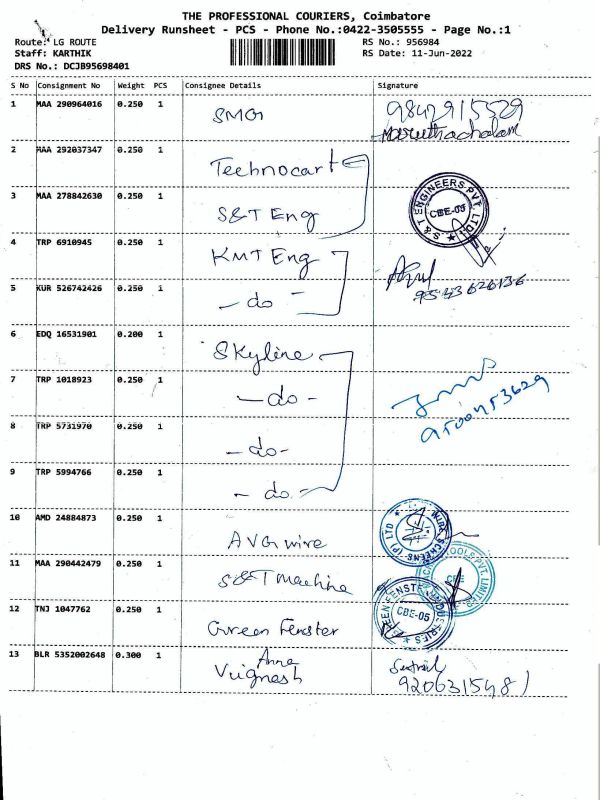 THE PROFESSIONAL COURIERS, Coimbatore
Delivery Runsheet - PCS - Phone No.:0422-3505555 - Page No.:1
Route: LG ROUTE
RS No.: 956984
Staff: KARTHIK
RS Date: 11-Jun-2022
DRS No.: DCJB95698401
S No Consignment No Weight PCS Consignee Details Signature
1 MAA 290964016 0.250 1 9842915529
Maruthachalam
2 MAA 292037347 0.250 1 Technocart
3 MAA 278842630 0.250 1 S&T Eng
S & T ENGINEERS PVT. LTD. CBE-05
4 TRP 6910945 0.250 1 KMT Eng
5 KUR 526742426 0.250 1 - do -
6 EDQ 16531901 0.200 1 Skyline
7 TRP 1018923 0.250 1 - do -
8 TRP 5731970 0.250 1 - do -
9 TRP 5994766 0.250 1 - do -
10 AMD 24884873 0.250 1 AVG wire
SCREENS (P) LTD
11 MAA 290442479 0.250 1 S&T machine
TOOLS PVT. LIMITED CBE
12 TNJ 1047762 0.250 1 Green Fenster
GREEN FENSTER INDUSTRIES CBE-05
13 BLR 5352002648 0.300 1 Anna
Viignesh
9206315481